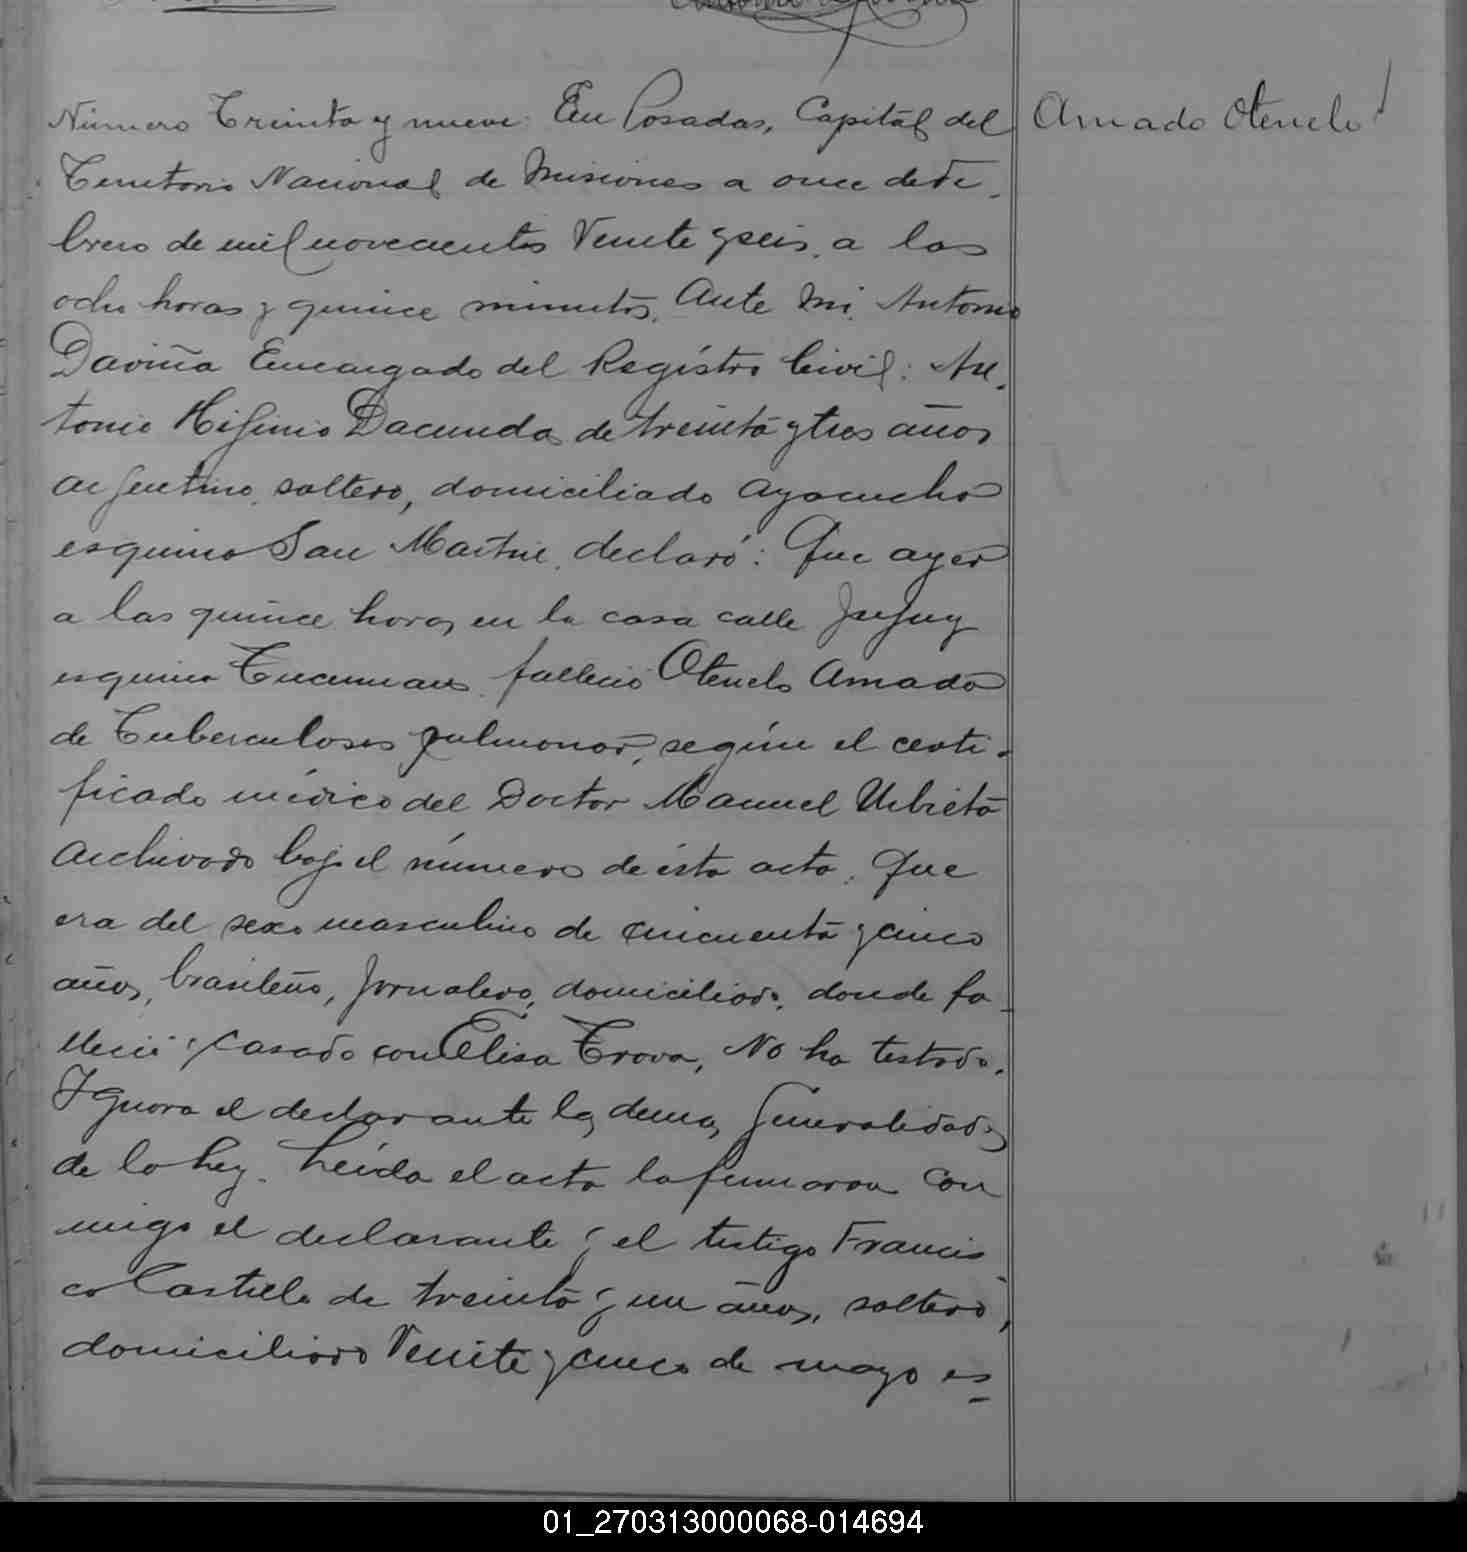 Número Treinta y nueve: En Posadas, Capital del
Amado Otenclo
Territorio Nacional de Misiones a once de Fe-
brero de mil novecientos Veinte y seis, a las
ocho horas y quince minutos. Ante Mi, Antonio
Daviña Encargado del Registro Civil: An-
tonio Higinio Dacunda, de treinta y tres años
argentino, soltero, domiciliado Ayacucho
esquina San Martin, declaró: Que ayer
a las quince horas, en la casa calle Jujuy
esquina Tucuman, falleció Otenclo Amado
de Tuberculosis pulmonar, según el certi-
ficado médico del Doctor Manuel Urbieta
archivado bajo el número de ésta acta. Que
era del sexo masculino de cincuenta y cinco
años, brasileño, jornalero, domiciliado, donde fa-
lleció; casado con Elisa Trova, No ha testado.
Ignora el declarante las demas generalidades
de la ley. Leída el acta la firmaron con
migo el declarante y el testigo Francis
co Castelo de treinta y un años, soltero,
domiciliado Veinte y cinco de mayo es-
01_270313000068-014694